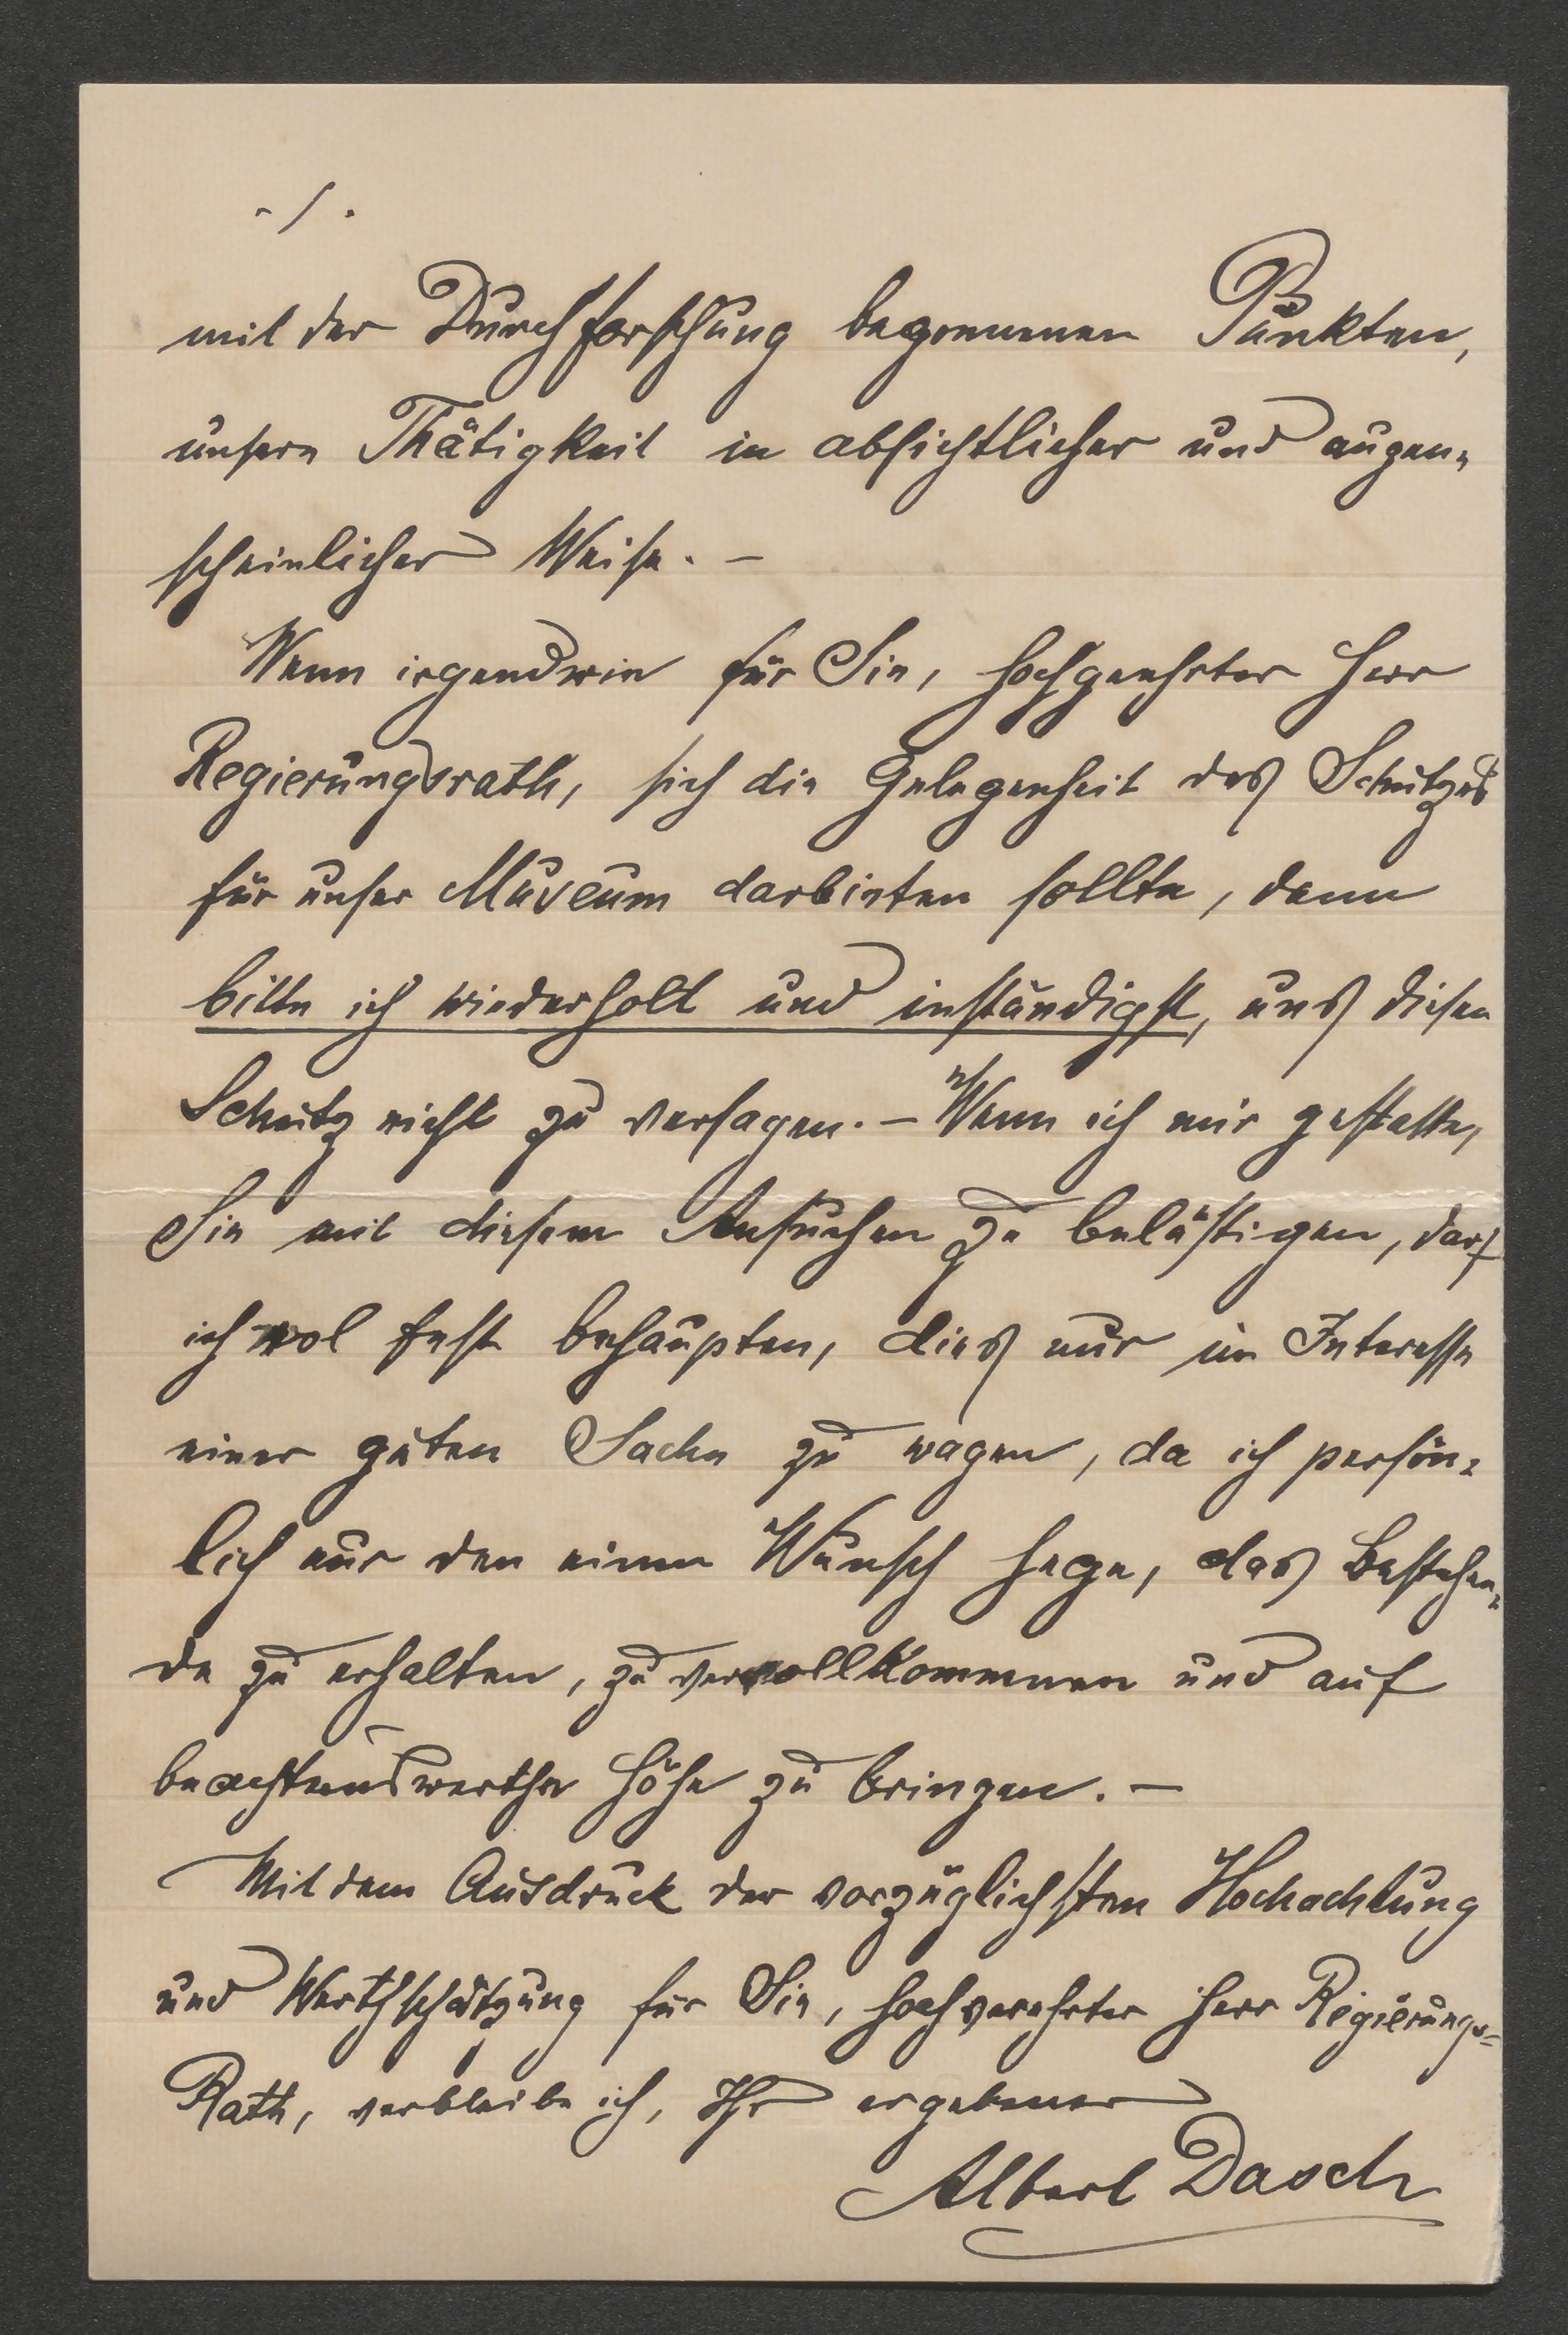 -/.
mit der Durchforschung begonnenen Punkten,
unsere Thätigkeit in absichtlicher und augen-
scheinlicher Weise. –
Wenn irgendwie für Sie, hochgeehrter Herr
Regierungsrath, sich die Gelegenheit des Schutzes
für unser Museum darbieten sollte, dann
bitte ich wiederholt und inständigst, uns diesen
Schutz nicht zu versagen. – Wenn ich mir gestatte,
Sie mit diesem Ansuchen zu belästigen, darf
ich wol fest behaupten, dies nur im Interesse
einer guten Sache zu wagen, da ich persön-
lich nur den einen Wunsch hege, das Bestehen-
de zu erhalten, zu vervollkommnen und auf
beachtenswerthe Höhe zu bringen. –
Mit dem Ausdruck der vorzüglichsten Hochachtung
und Werthschätzung für Sie, hochverehrter Herr Regierungs-
Rath, verbleibe ich, Ihr ergebener
Albert Dasch